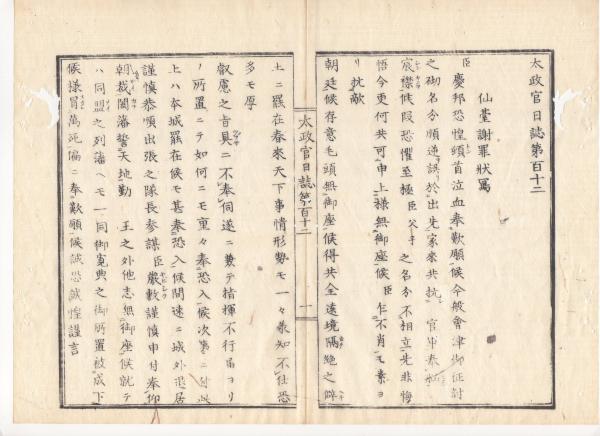 太政官日誌第百十二
仙臺謝罪狀寫
臣慶邦恐惶頓首泣血奉歎願候今般會津御征討
之砌名分順逆ヲ誤リ於出先家來共抗 官軍奉惱
宸襟候段恐懼至極臣父子之名分不相立先非悔
悟今更何共可申上樣無御座候臣乍不肖モ素ヨ
リ抗敵
朝廷候存意毛頭無御座候得共全遠境隔絶之僻
土ニ罷在春來天下事情形勢モ一々承知不仕恐
多モ厚
叡慮之旨具ニ不奉伺遂ニ數テ指揮不行屆ヨリ
ノ所置ニテ如何ニモ重々奉恐入候次第ニ付此
上ハ本城罷在候モ甚奉恐入候間速ニ城外退居
謹愼恭順出張之隊長參謀臣嚴敷謹愼申付奉仰
朝裁闔藩誓天地勤 王之外他志無御座候就テ
ハ同盟之列藩ヘモ一同御寬典之御所置被成下
候樣冒萬死偏ニ奉歎願候誠恐誠惶謹言
太政官日誌第百十二 一